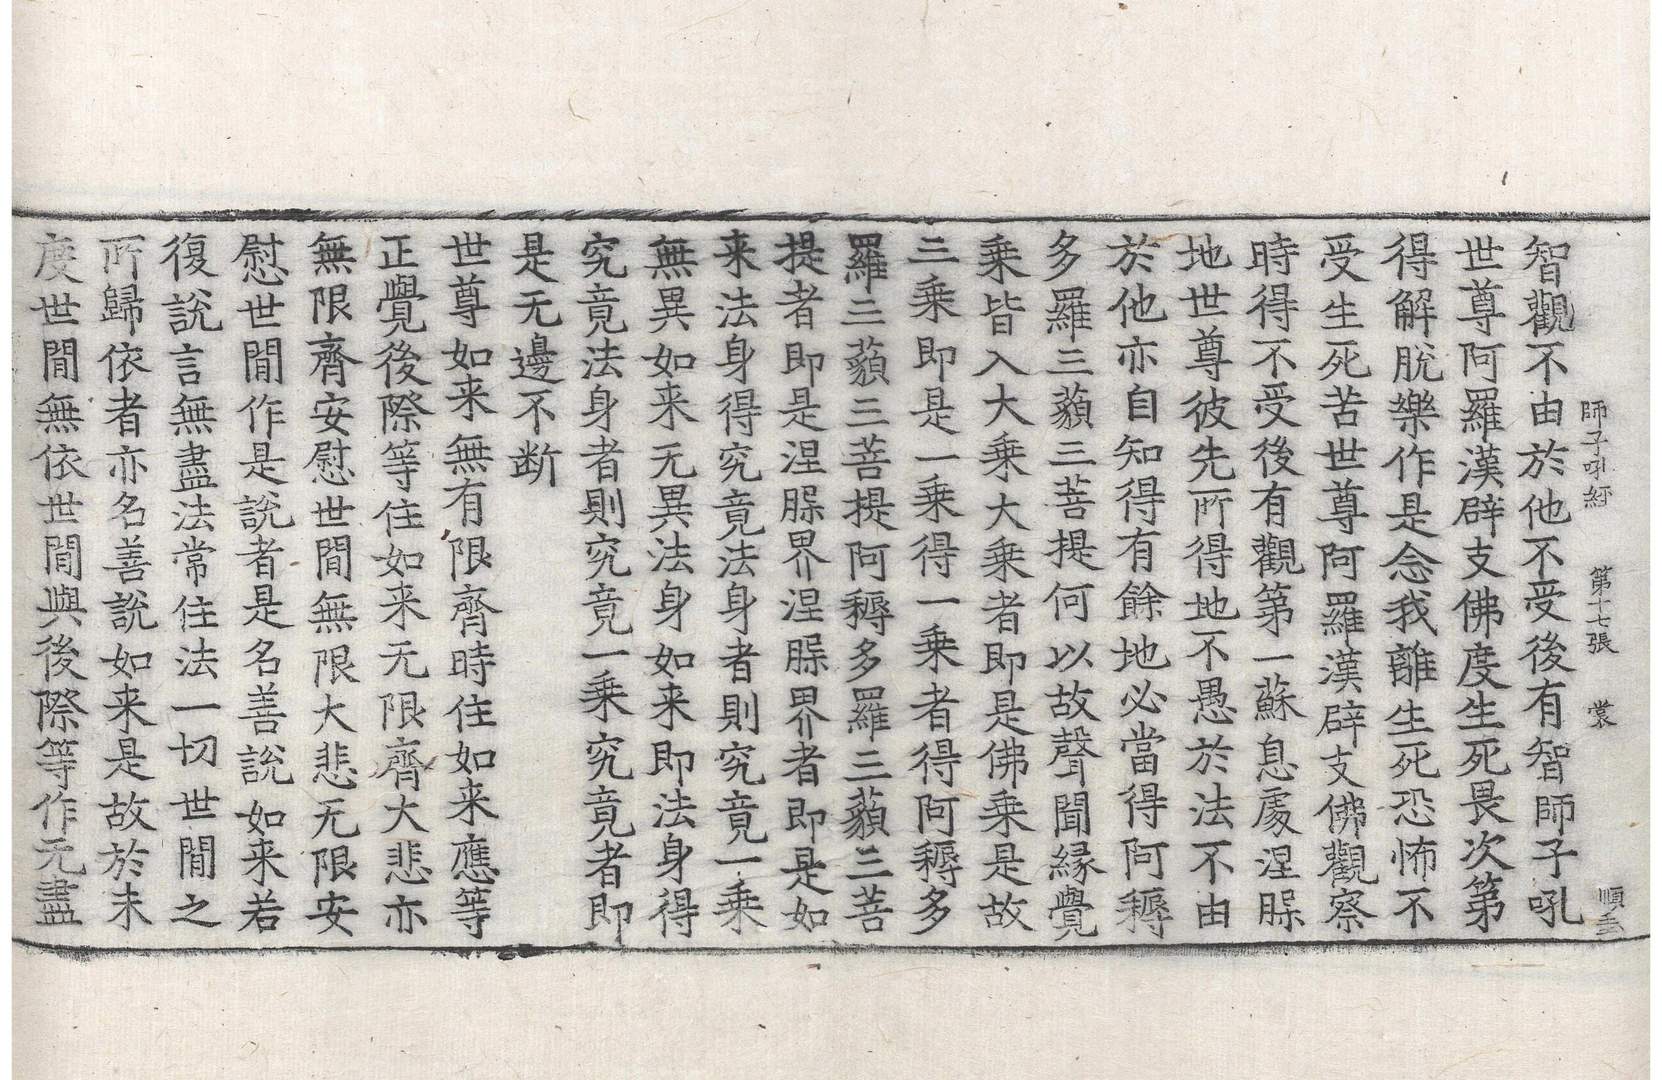 師子吼經 第十七張 裳
智觀不由於他不受後有智師子吼
世尊阿羅漢辟支佛度生死畏次第
得解脫樂作是念我離生死恐怖不
受生死苦世尊阿羅漢辟支佛觀察
時得不受後有觀第一蘇息處涅槃
地世尊彼先所得地不愚於法不由
於他亦自知得有餘地必當得阿耨
多羅三藐三菩提何以故聲聞緣覺
乗皆入大乗大乗者即是佛乗是故
三乗即是一乗得一乗者得阿耨多
羅三藐三菩提阿耨多羅三藐三菩
提者即是涅槃界涅槃界者即是如
来法身得究竟法身者則究竟一乗
無異如来无異法身如来即法身得
究竟法身者則究竟一乗究竟者即
是无邊不断
世尊如来無有限齊時住如来應等
正覺後際等住如来无限齊大悲亦
無限齊安慰世間無限大悲无限安
慰世間作是說者是名善說如来若
復說言無盡法常住法一切世間之
所歸依者亦名善說如来是故於未
度世間無依世間與後際等作无盡